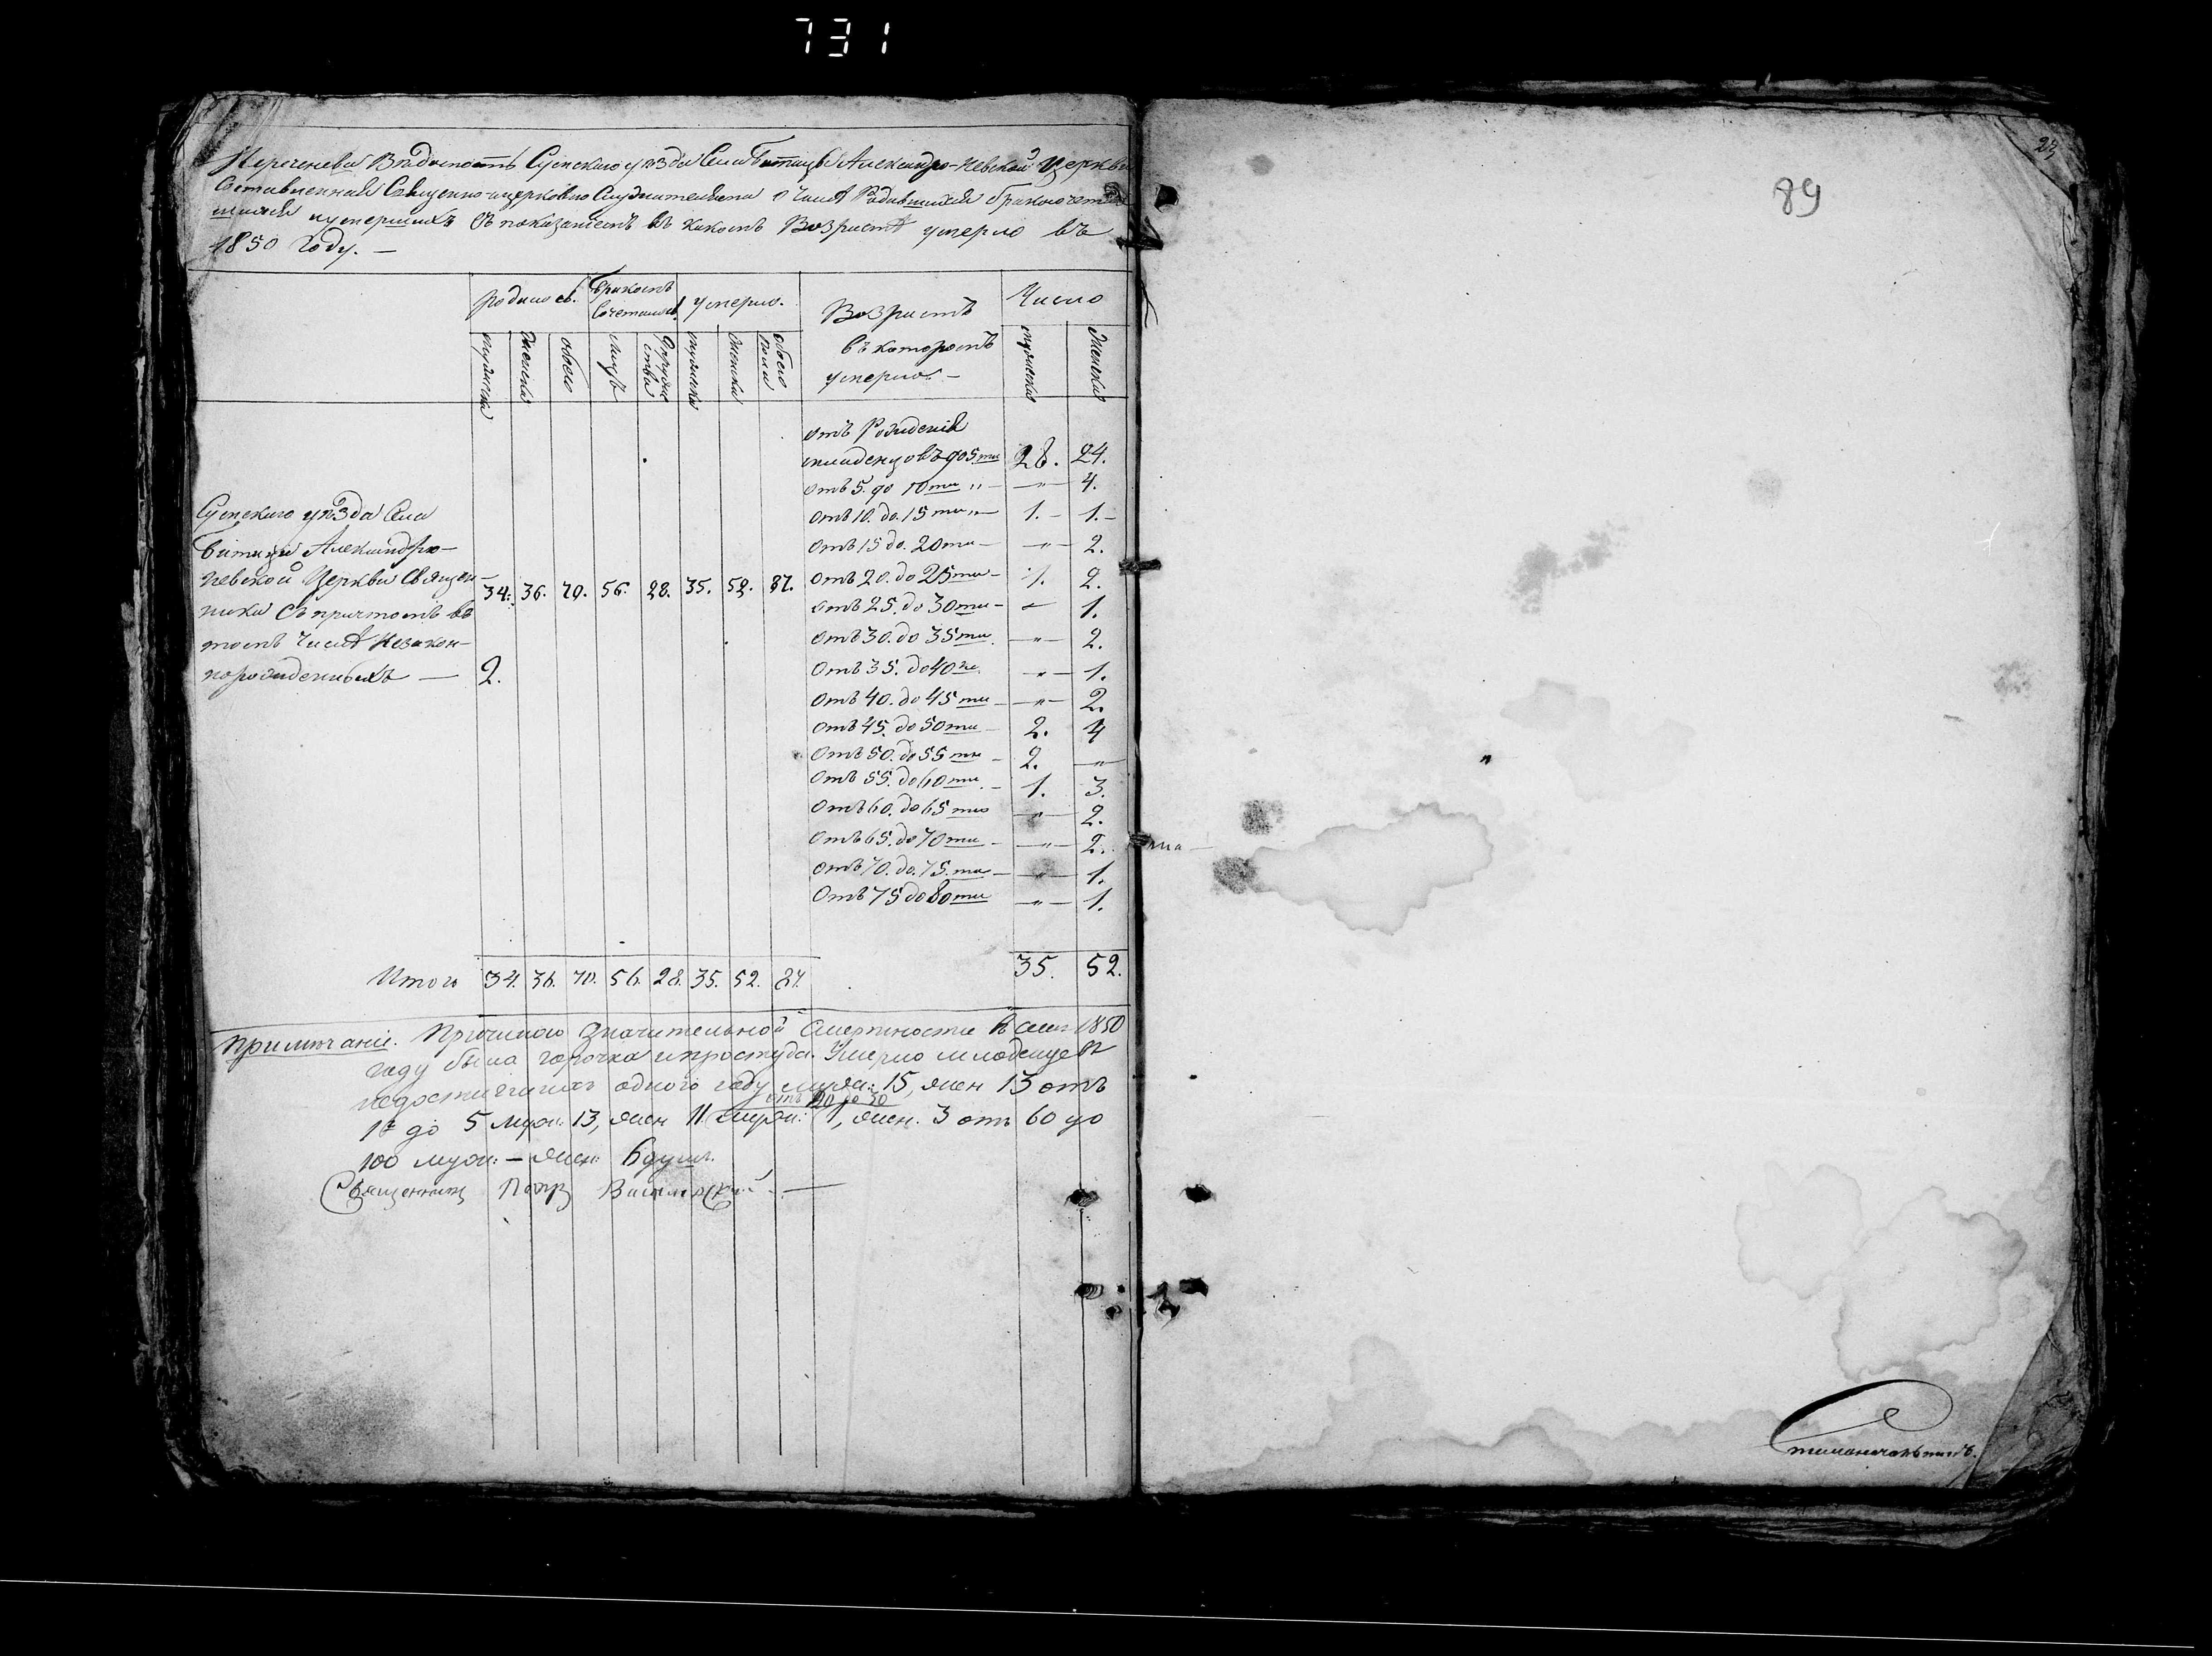 731
Перечнева Вѣдомость Сумскаго уѣзда Села Битицы Александро-Невской Церкви
Составленная Священно-церковно Служителями о числѣ Родившихся бракосочетав
шихся и умершихъ Съ показаніемъ въ какомъ Возрастѣ умерло въ
1850 Году. —
родилось. Бракомъ Сочеталось умерло. Возрастъ въ которомъ умерло. — Число
мужеска женска обоего лицъ Супружества мужеска женска обоего пола мужеска женска
отъ Рожденія
младенцовъ до 5ти 28. 24.
отъ 5. до 10ти „ — „ — 4.
отъ 10. до. 15ти „ — 1. — 1. —
отъ 15 до. 20ти — — „ — 2.
отъ 20. до 25ти — 1. 2.
отъ 25. до 30ти — „ 1.
отъ 30. до 35ти — „ — 2.
отъ 35. до 40ти — „ — 1.
отъ 40. до 45ти — — „ — 2.
отъ 45. до 50ти — 2. 4
отъ 50. до 55ти — 2. — „ —
отъ 55. до 60ти. — 1. 3.
отъ 60. до 65ти — „ — 2.
отъ 65. до 70ти — — „ — 2.
отъ 70. до. 75. ти — — „ — 1.
отъ 75 до 80ти — „ — 1.
Сумскаго уѣзда Села
Битицы Александро-
Невской Церкви Священ-
ника Съ причтомъ въ
томъ Числѣ Незакон-
норожденныхъ — 2.
34. 36. 70. 56. 28. 35. 52. 87.
Итого 34. 36. 70. 56. 28. 35. 52. 87. 35. 52.
Примѣчаніе. Причиною значительной смертности въ семъ 1850
году была горячка и простуда. Умерло младенцевъ
недостигшихъ одного году муж: 15, жен 13 отъ
отъ 20 до 30
1 до 5 муж: 13, жен 11. муж: 1, жен. 3 отъ 60 до
100 муж: — жен: 6 душъ.
Священникъ Петръ —
23
89